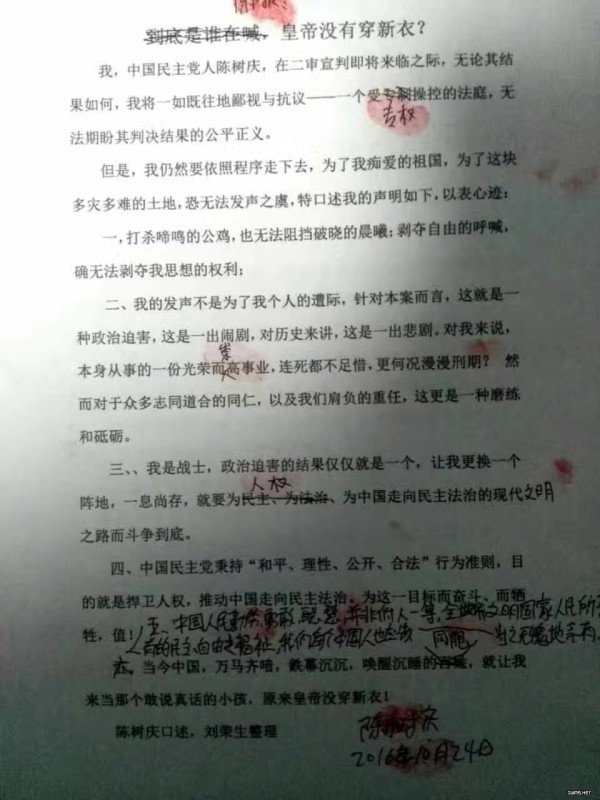 到底是谁在喊，皇帝没有穿新衣？
我，中国民主党人陈树庆，在二审宣判即将来临之际，无论其结
果如何，我将一如既往地鄙视与抗议——一个受专制操控的法庭，无
法期盼其判决结果的公平正义。
但是，我仍然要依照程序走下去，为了我痴爱的祖国，为了这块
多灾多难的土地，恐无法发声之虞，特口述我的声明如下，以表心迹：
一，打杀啼鸣的公鸡，也无法阻挡破晓的晨曦；剥夺自由的呼喊，
确无法剥夺我思想的权利；
二、我的发声不是为了我个人的遭际，针对本案而言，这就是一
种政治迫害，这是一出闹剧，对历史来讲，这是一出悲剧。对我来说，
崇
本身从事的一份光荣而高事业，连死都不足惜，更何况漫漫刑期？ 然
而对于众多志同道合的同仁，以及我们肩负的重任，这更是一种磨练
和砥砺。
三、、我是战士，政治迫害的结果仅仅就是一个，让我更换一个
人权
阵地，一息尚存，就要为民主、为法治、为中国走向民主法治的现代文明
之路而斗争到底。
四、中国民主党秉持“和平、理性、公开、合法”行为准则，目
的就是捍卫人权，推动中国走向民主法治。为这一目标而奋斗、而牺
牲，值！
五、中国人民勤劳、勇敢、聪慧，并非低人一等，全世界文明国家人民所
享有的民主自由之福祉，我们当代中国人也应该 当之无愧地享有。
同胞
六，当今中国，万马齐喑，鉄幕沉沉，唤醒沉睡的，就让我
来当那个敢说真话的小孩，原来皇帝没穿新衣！
陈树庆口述，刘荣生整理
陈树庆
2016年10月24日